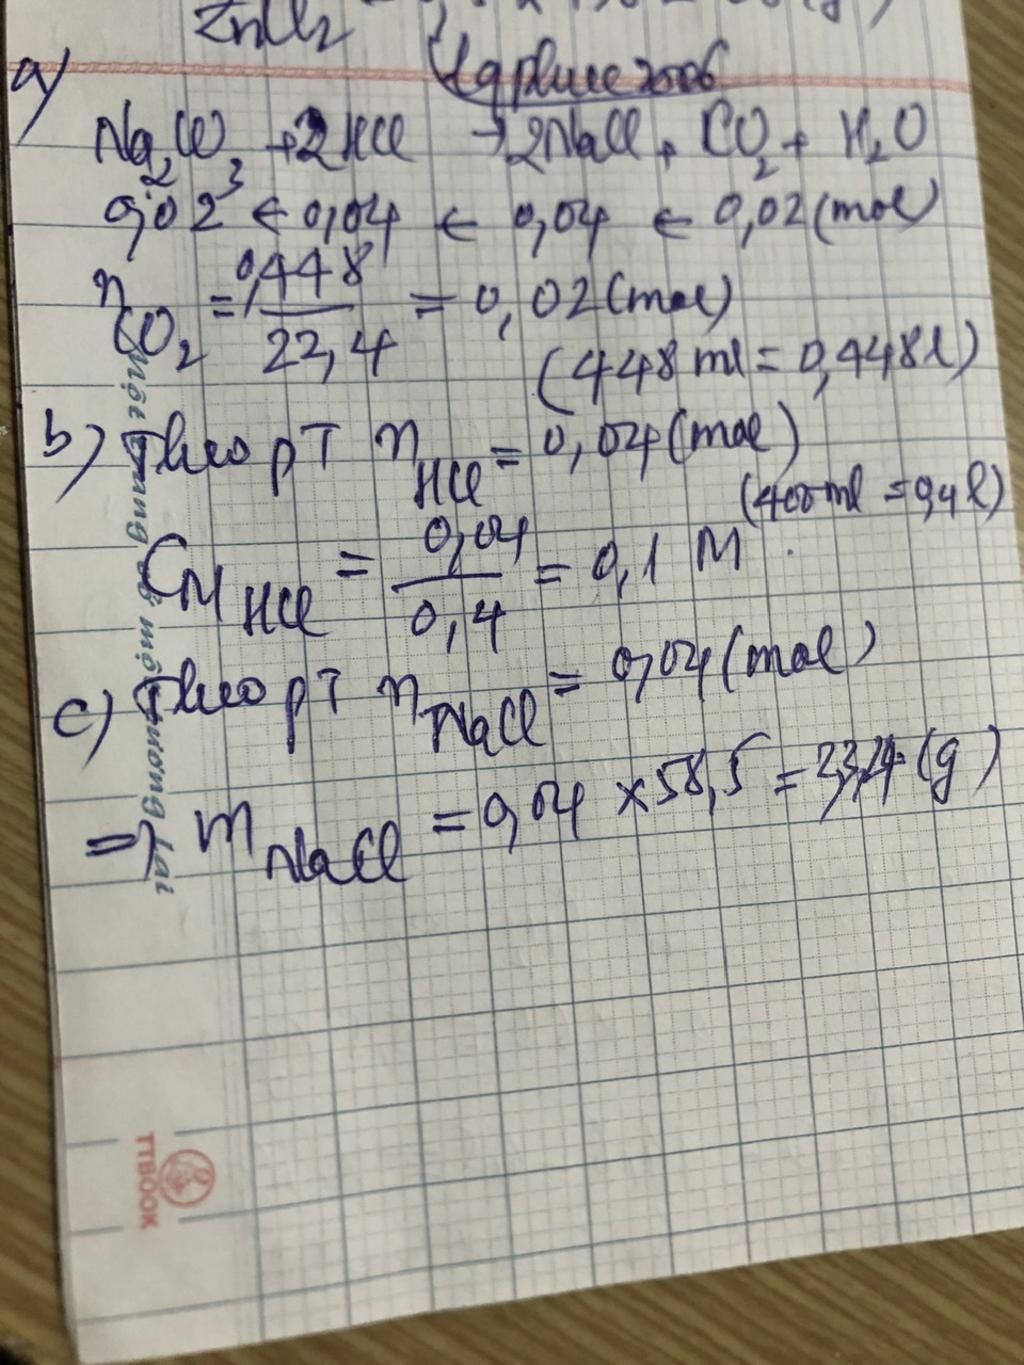 ZnCl2
a)
Na2CO3 + 2HCl → 2NaCl + CO2 + H2O
0,02 ← 0,04 ← 0,04 ← 0,02 (mol)
nCO2 = 0,448 / 22,4 = 0,02 (mol)
(448 ml = 0,448 l)
b) Theo pT nHCl = 0,04 (mol)
(400 ml = 0,4 l)
CM HCl = 0,04 / 0,4 = 0,1 M
c) Theo pT nNaCl = 0,04 (mol)
=> mNaCl = 0,04 × 58,5 = (g)
TTBOOK